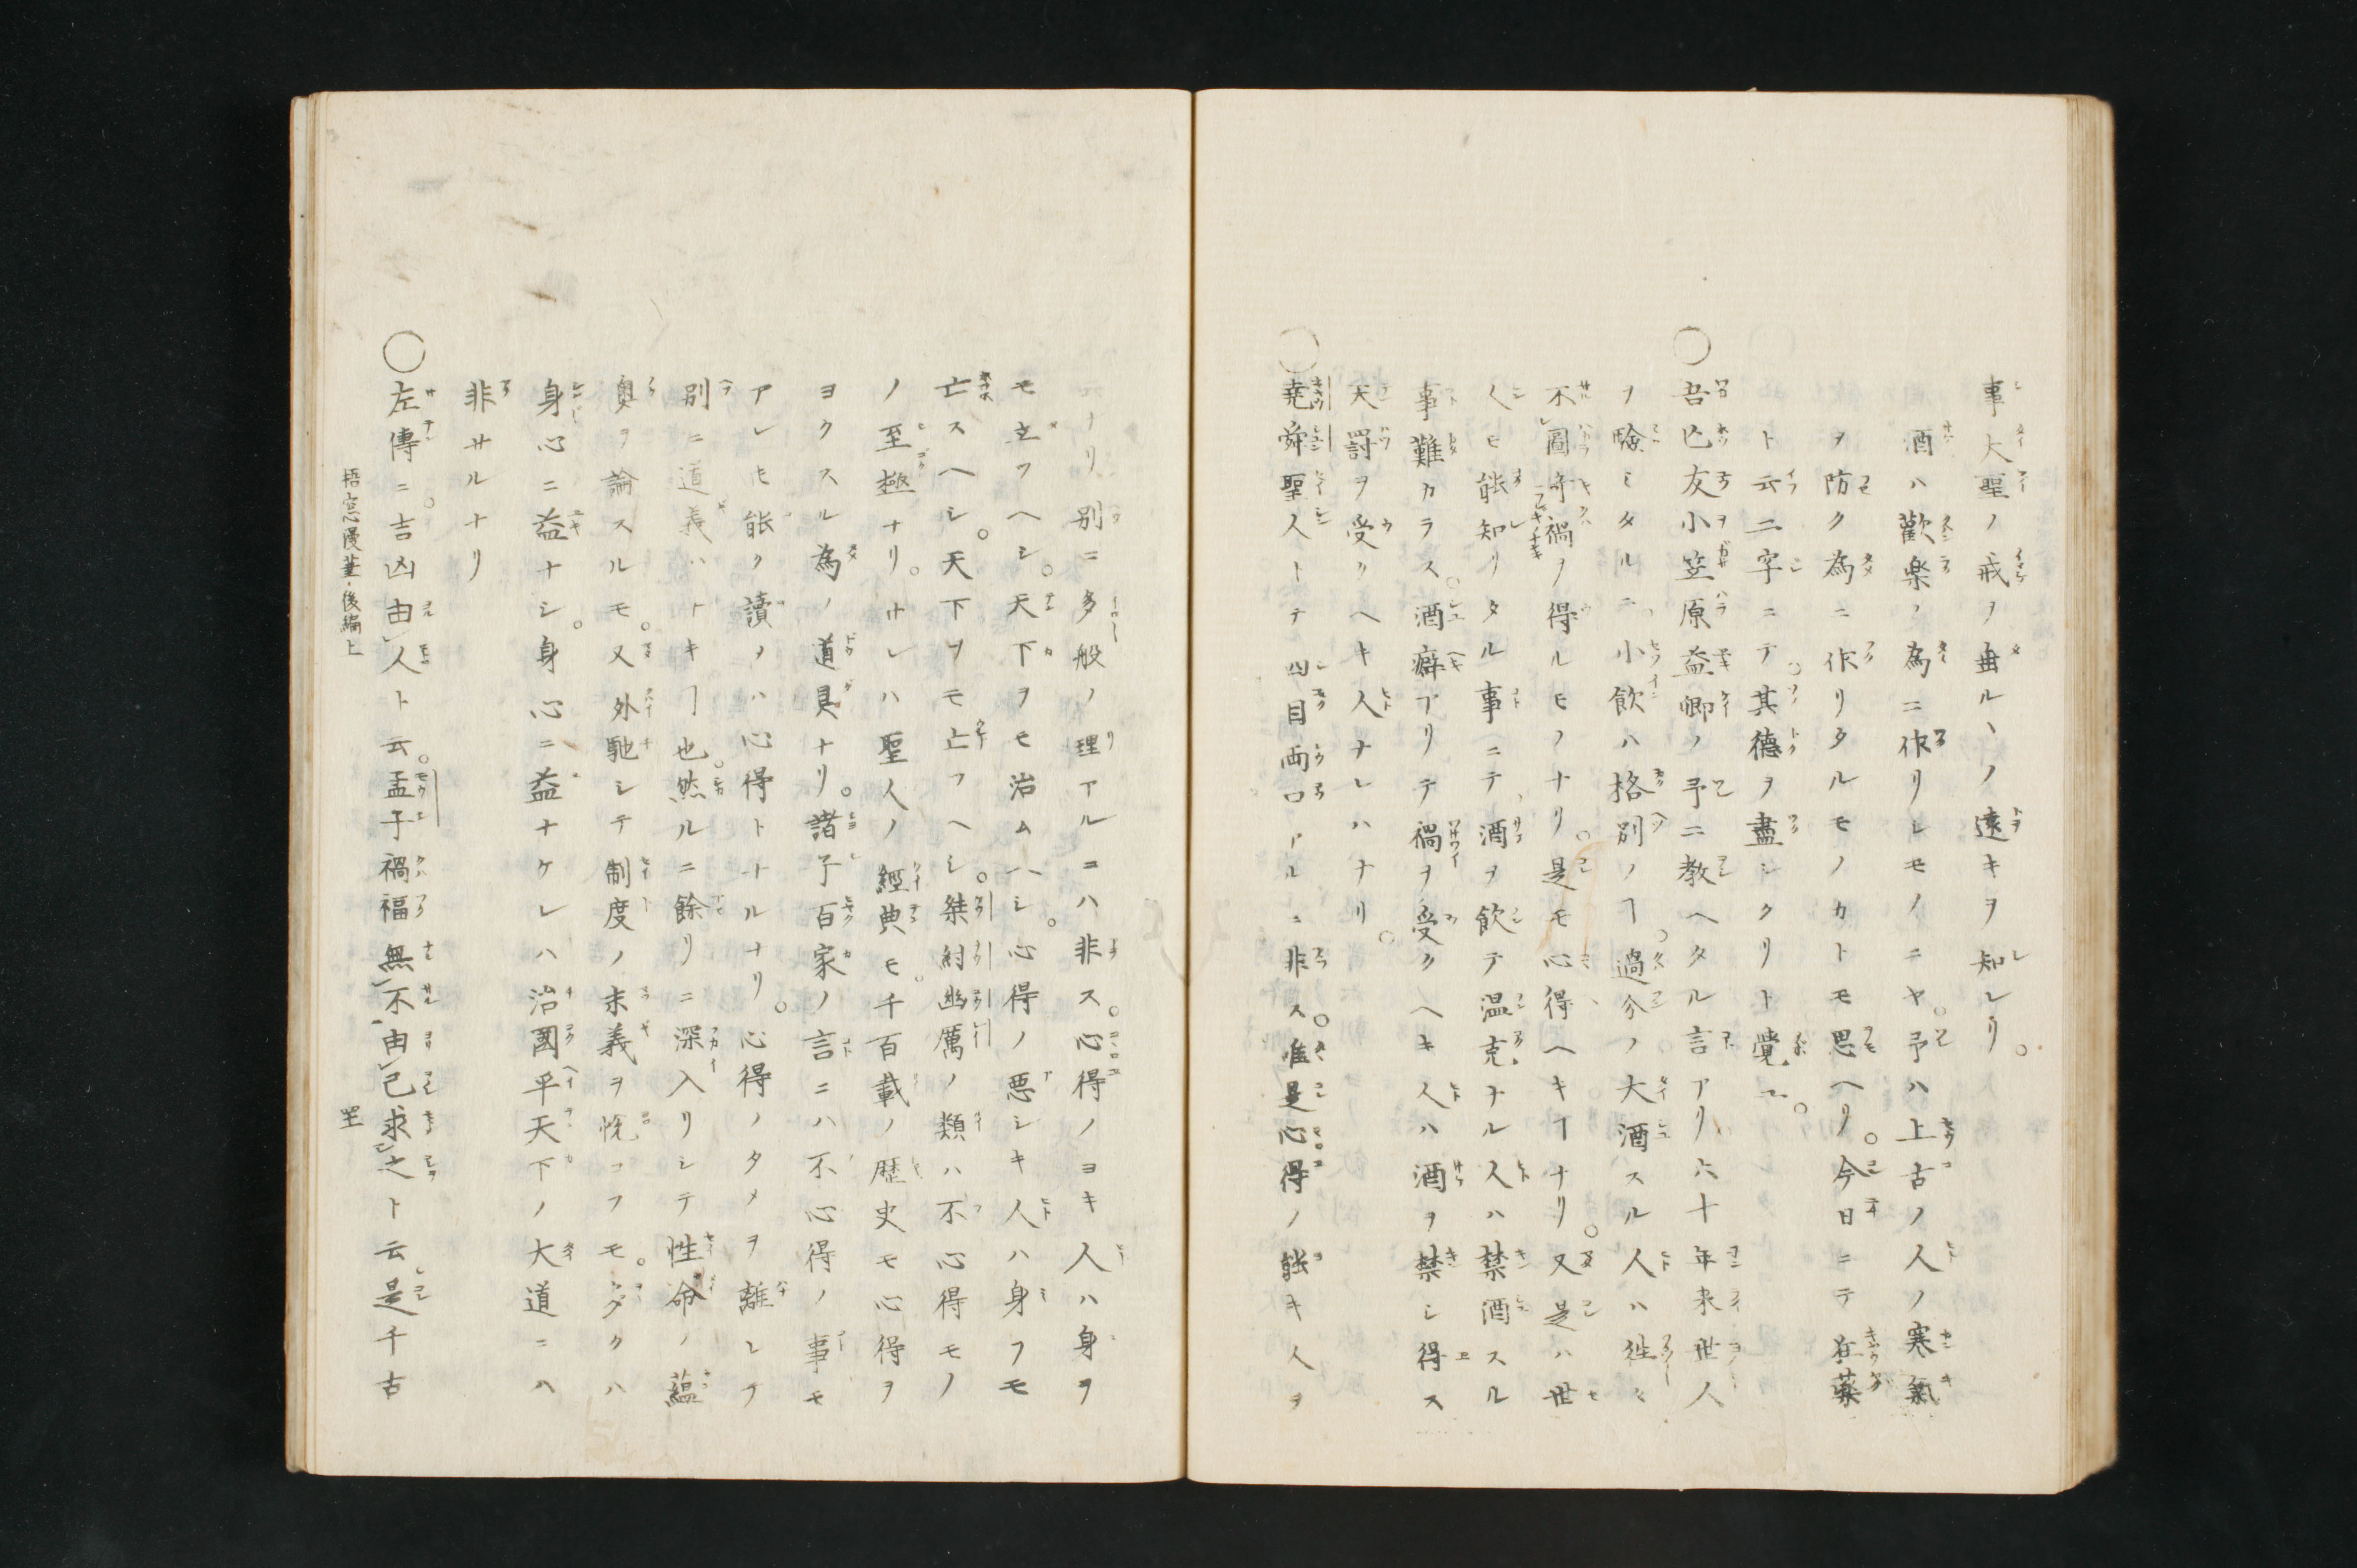 事大聖ノ戒ヲ垂ル、ノ遠キヲ知レリ。
酒ハ歡楽ノ為ニ作リシモノニヤ。予ハ上古ノ人ノ寒氣
ヲ防ク為ニ作リタルモノカトモ思ヘリ。今日ニテ狂藥
ト云二字ニテ。其德ヲ盡シクリト覺ユ。
○吾亡友小笠原益卿ノ予ニ教ヘタル言アリ六十年来世人
ヲ驗ミタルニ、小飲ハ格別ノヿ。過分ノ大酒スル人ハ徃々
不圖奇禍ヲ得ルモノナリ。是モ心得ヘキヿナリ。又是ハ世
人モ能知リタル事ニテ、酒ヲ飲テ温克ナル人ハ禁酒スル
事難カラス。酒癖アリテ禍ヲ受クヘキ人ハ酒ヲ禁シ得ス
天罸ヲ受クヘキ人ナレハナリ。
○堯舜聖人トテ四目両口アルニ非ス。唯是心得ノ能キ人ヲ
ナリ別ニ多般ノ理アルニハ非ス。心得ノヨキ人ハ身ヲ
モ立ツヘシ。天下ヲモ治ムヘシ。心得ノ悪シキ人ハ身ヲモ
亡スヘシ。天下ヲモ亡フヘシ。桀紂幽厲ノ類ハ不心得モノ
ノ至極ナリ。サレハ聖人ノ經典モ。千百載ノ歴史モ心得ヲ
ヨクスル為ノ道具ナリ。諸子百家ノ言ニハ不心得ノ事モ
アレ𪜈能ク讀メハ心得トナルナリ。心得ノタメヲ離レテ
別ニ道義ハナキヿ也。然ルニ餘リニ深入リシテ性命ノ蘊
奥ヲ論スルモ。又外馳シテ制度ノ末義ヲ悦コフモ。多クハ
身心ニ益ナシ。身心ニ益ナケレハ治國平天下ノ大道ニハ
非サルナリ
○左傳ニ。吉凶由人ト云。孟子禍福無不由己求之ト云是千古
梧窓漫筆・後編上